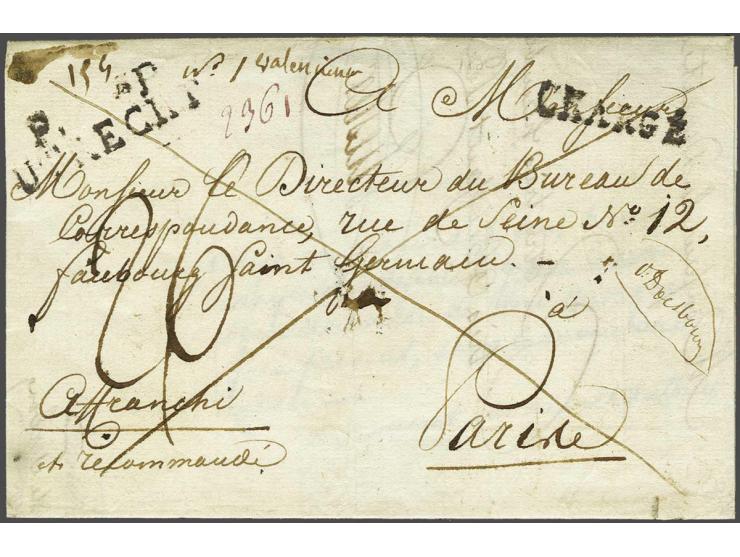 154 No 1 Valencienn
P. PP
UTRECHT
2361
CHARGÉ
A Monsieur
Monsieur le Directeur du Bureau de
Correspondance, rue de Seine No. 12,
faubourg Saint Germain. —
à
v. Doesburg
Affranchi
et recommandé
Parise